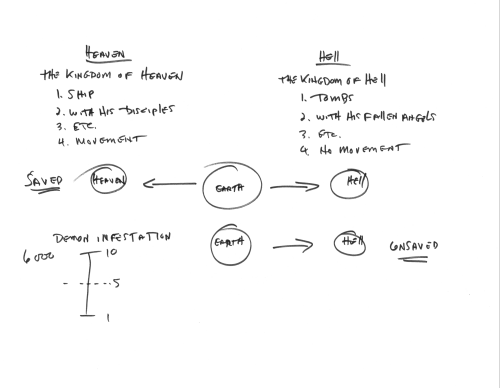 HEAVEN
THE KINGDOM OF HEAVEN
1. SHIP
2. WITH HIS DISCIPLES
3. ETC.
4. MOVEMENT
HELL
THE KINGDOM OF HELL
1. TOMBS
2. WITH HIS FALLEN ANGELS
3. ETC.
4. NO MOVEMENT
SAVED HEAVEN EARTH HELL
DEMON INFESTATION
6000 10
5
1
EARTH HELL UNSAVED